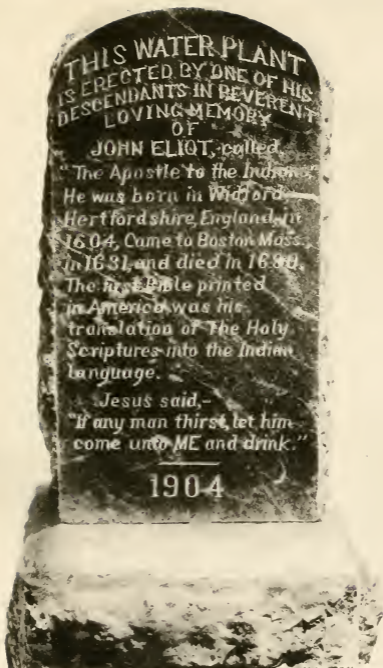 THIS WATER PLANT
IS ERECTED BY ONE OF HIS
DESCENDANTS IN REVERENT
LOVING MEMORY
OF
JOHN ELIOT, called,
"The Apostle to the Indians,"
He was born in Widford
Hertfordshire, England, in
1604, Came to Boston Mass.
in 1631, and died in 1690.
The first Bible printed
in America was his
translation of The Holy
Scriptures into the Indian
language.
Jesus said,-
"If any man thirst, let him
come unto ME and drink."
1904